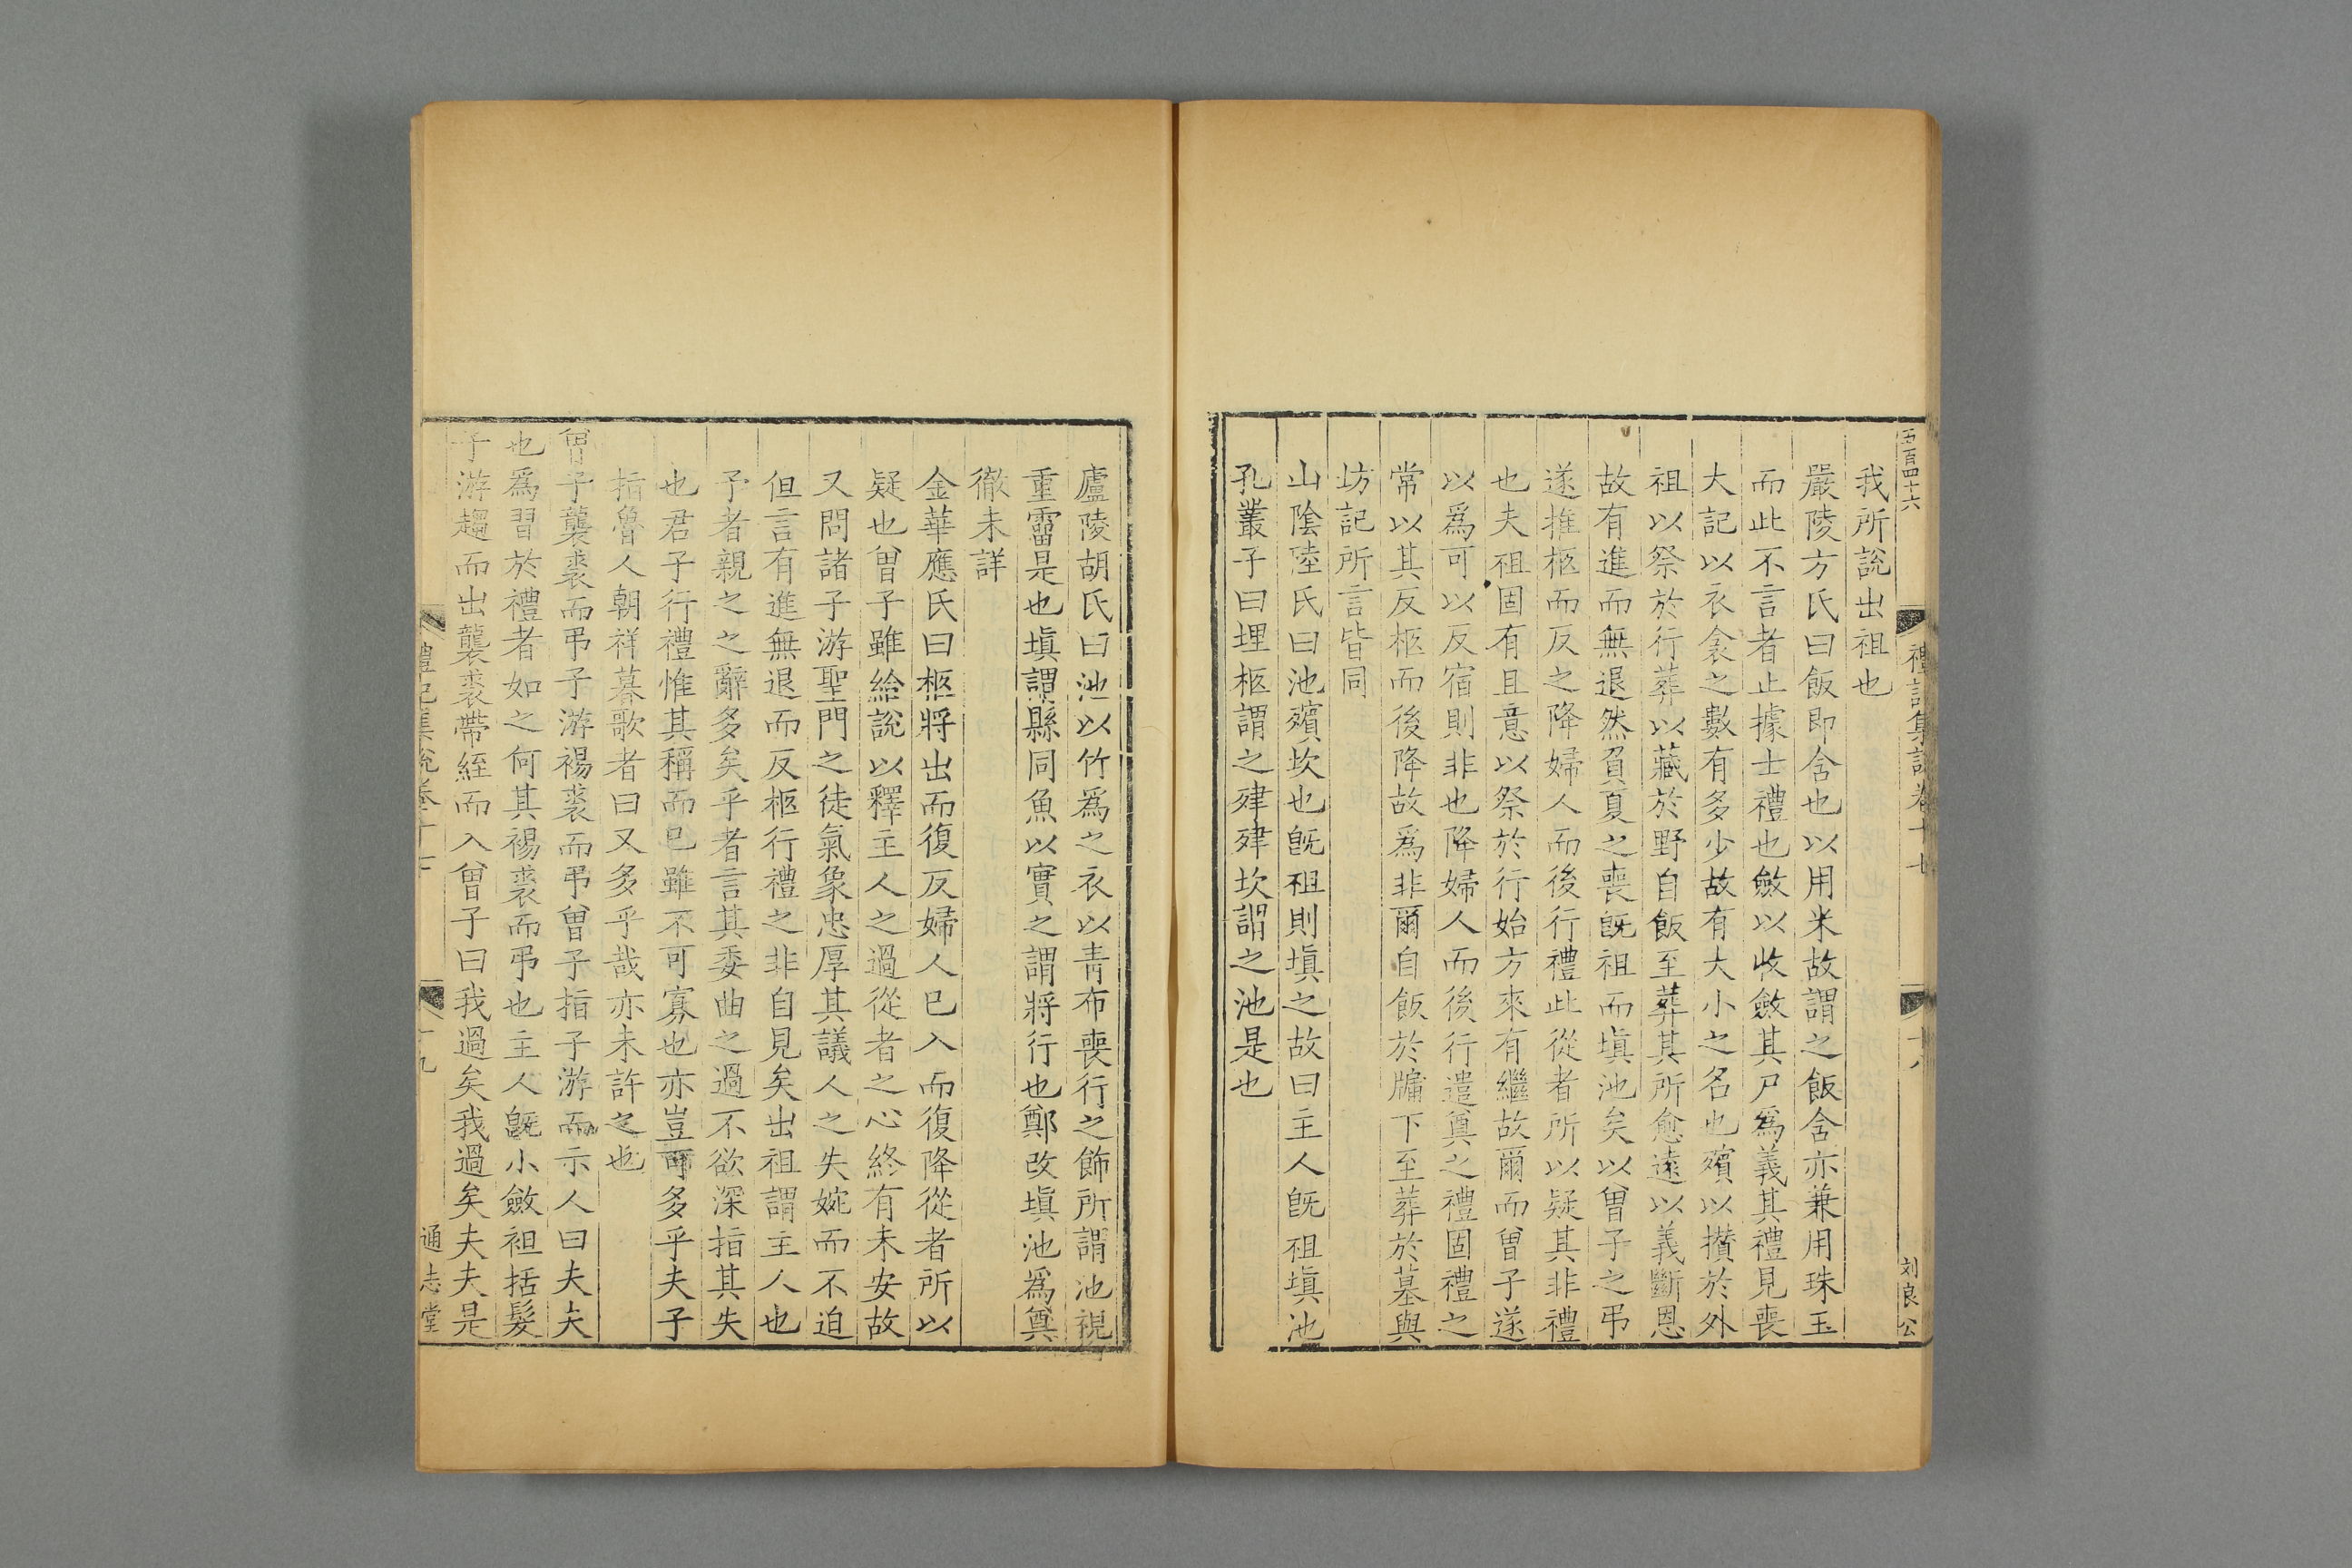 五百四十六
禮記集說卷十七
十八
刘良公
我所說出祖也
嚴陵方氏曰飯即含也以用米故謂之飯含亦兼用珠玉
而此不言者止據士禮也斂以收斂其尸爲義其禮見喪
大記以衣衾之數有多少故有大小之名也殯以攢於外
祖以祭於行葬以藏於野自飯至葬其所愈遠以義斷恩
故有進而無退然負夏之喪旣祖而塡池矣以曾子之弔
遂推柩而反之降婦人而後行禮此從者所以疑其非禮
也夫祖固有且意以祭於行始方來有繼故爾而曾子遂
以爲可以反宿則非也降婦人而後行遣奠之禮固禮之
常以其反柩而後降故爲非爾自飯於牖下至葬於墓與
坊記所言皆同
山陰陸氏曰池殯坎也旣祖則塡之故曰主人旣祖塡池
孔叢子曰埋柩謂之肂肂坎謂之池是也
廬陵胡氏曰池以竹爲之衣以靑布喪行之飾所謂池視
重霤是也塡謂縣同魚以實之謂將行也鄭改塡池爲奠
徹未詳
金華應氏曰柩將出而復反婦人已入而復降從者所以
疑也曾子雖給說以釋主人之過從者之心終有未安故
又問諸子游聖門之徒氣象忠厚其議人之失婉而不迫
但言有進無退而反柩行禮之非自見矣出祖謂主人也
予者親之之辭多矣乎者言其委曲之過不欲深指其失
也君子行禮惟其稱而已雖不可寡也亦豈可多乎夫子
指魯人朝祥暮歌者曰又多乎哉亦未許之也
曾子襲裘而弔子游裼裘而弔曾子指子游而示人曰夫夫
也爲習於禮者如之何其裼裘而弔也主人旣小斂袒括髮
子游趨而出襲裘帶絰而入曾子曰我過矣我過矣夫夫是
禮記集說卷十七
十九
通志堂